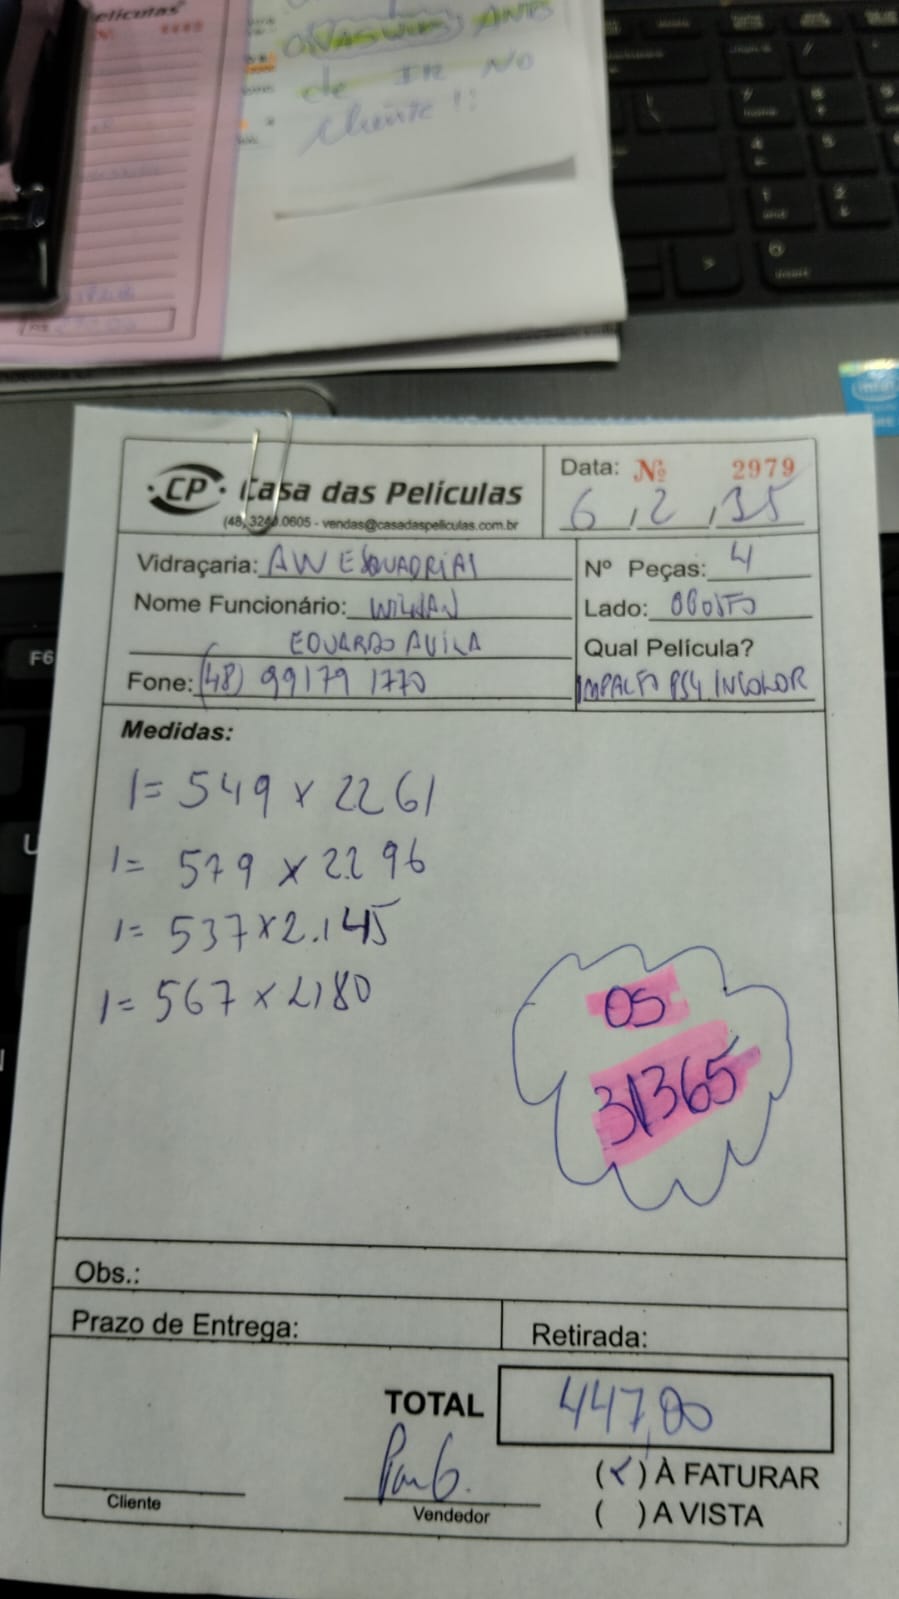 de IR NO
cliente !!
CP Casa das Películas
(48) 3240.0605 - vendas@casadaspeliculas.com.br
Data: Nº 2979
6 , 2 , 35
Vidraçaria: AW ESQUADRIAS
Nome Funcionário: WILLIAN
EDUARDO AVILA
Fone: (48) 99179 1770
Nº Peças: 4
Lado: OPOSTO
Qual Película?
IMPACTO PS4 INCOLOR
Medidas:
1= 549 x 2261
1= 579 x 2296
1= 537 x 2.145
1= 567 x 2180
OS
31365
Obs.:
Prazo de Entrega:
Retirada:
TOTAL 447,00
(X) À FATURAR
( ) A VISTA
Cliente
Vendedor
F6